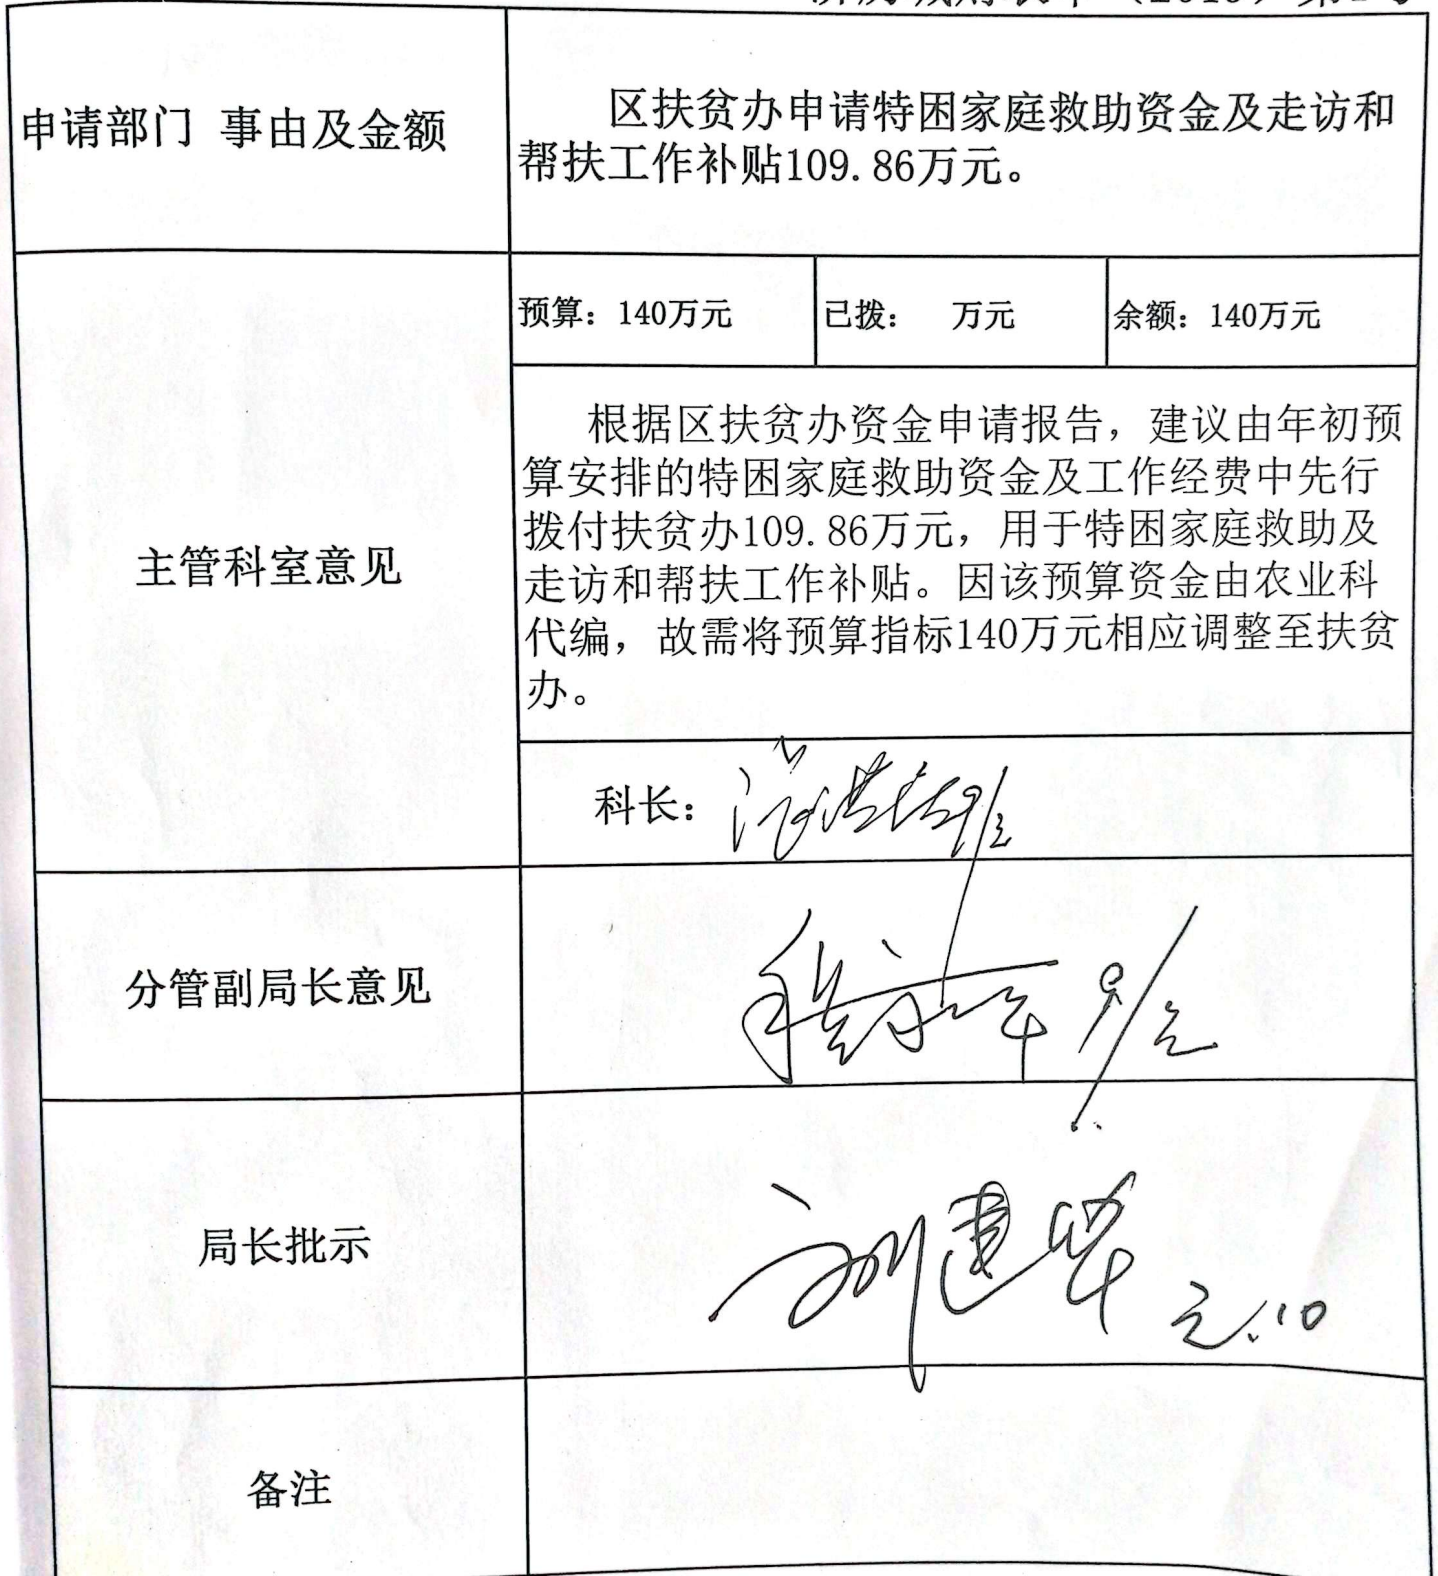 申请部门 事由及金额
区扶贫办申请特困家庭救助资金及走访和
帮扶工作补贴109.86万元。
预算：140万元
已拨：　万元
余额：140万元
主管科室意见
根据区扶贫办资金申请报告，建议由年初预
算安排的特困家庭救助资金及工作经费中先行
拨付扶贫办109.86万元，用于特困家庭救助及
走访和帮扶工作补贴。因该预算资金由农业科
代编，故需将预算指标140万元相应调整至扶贫
办。
科长：
分管副局长意见
局长批示
刘建华
备注